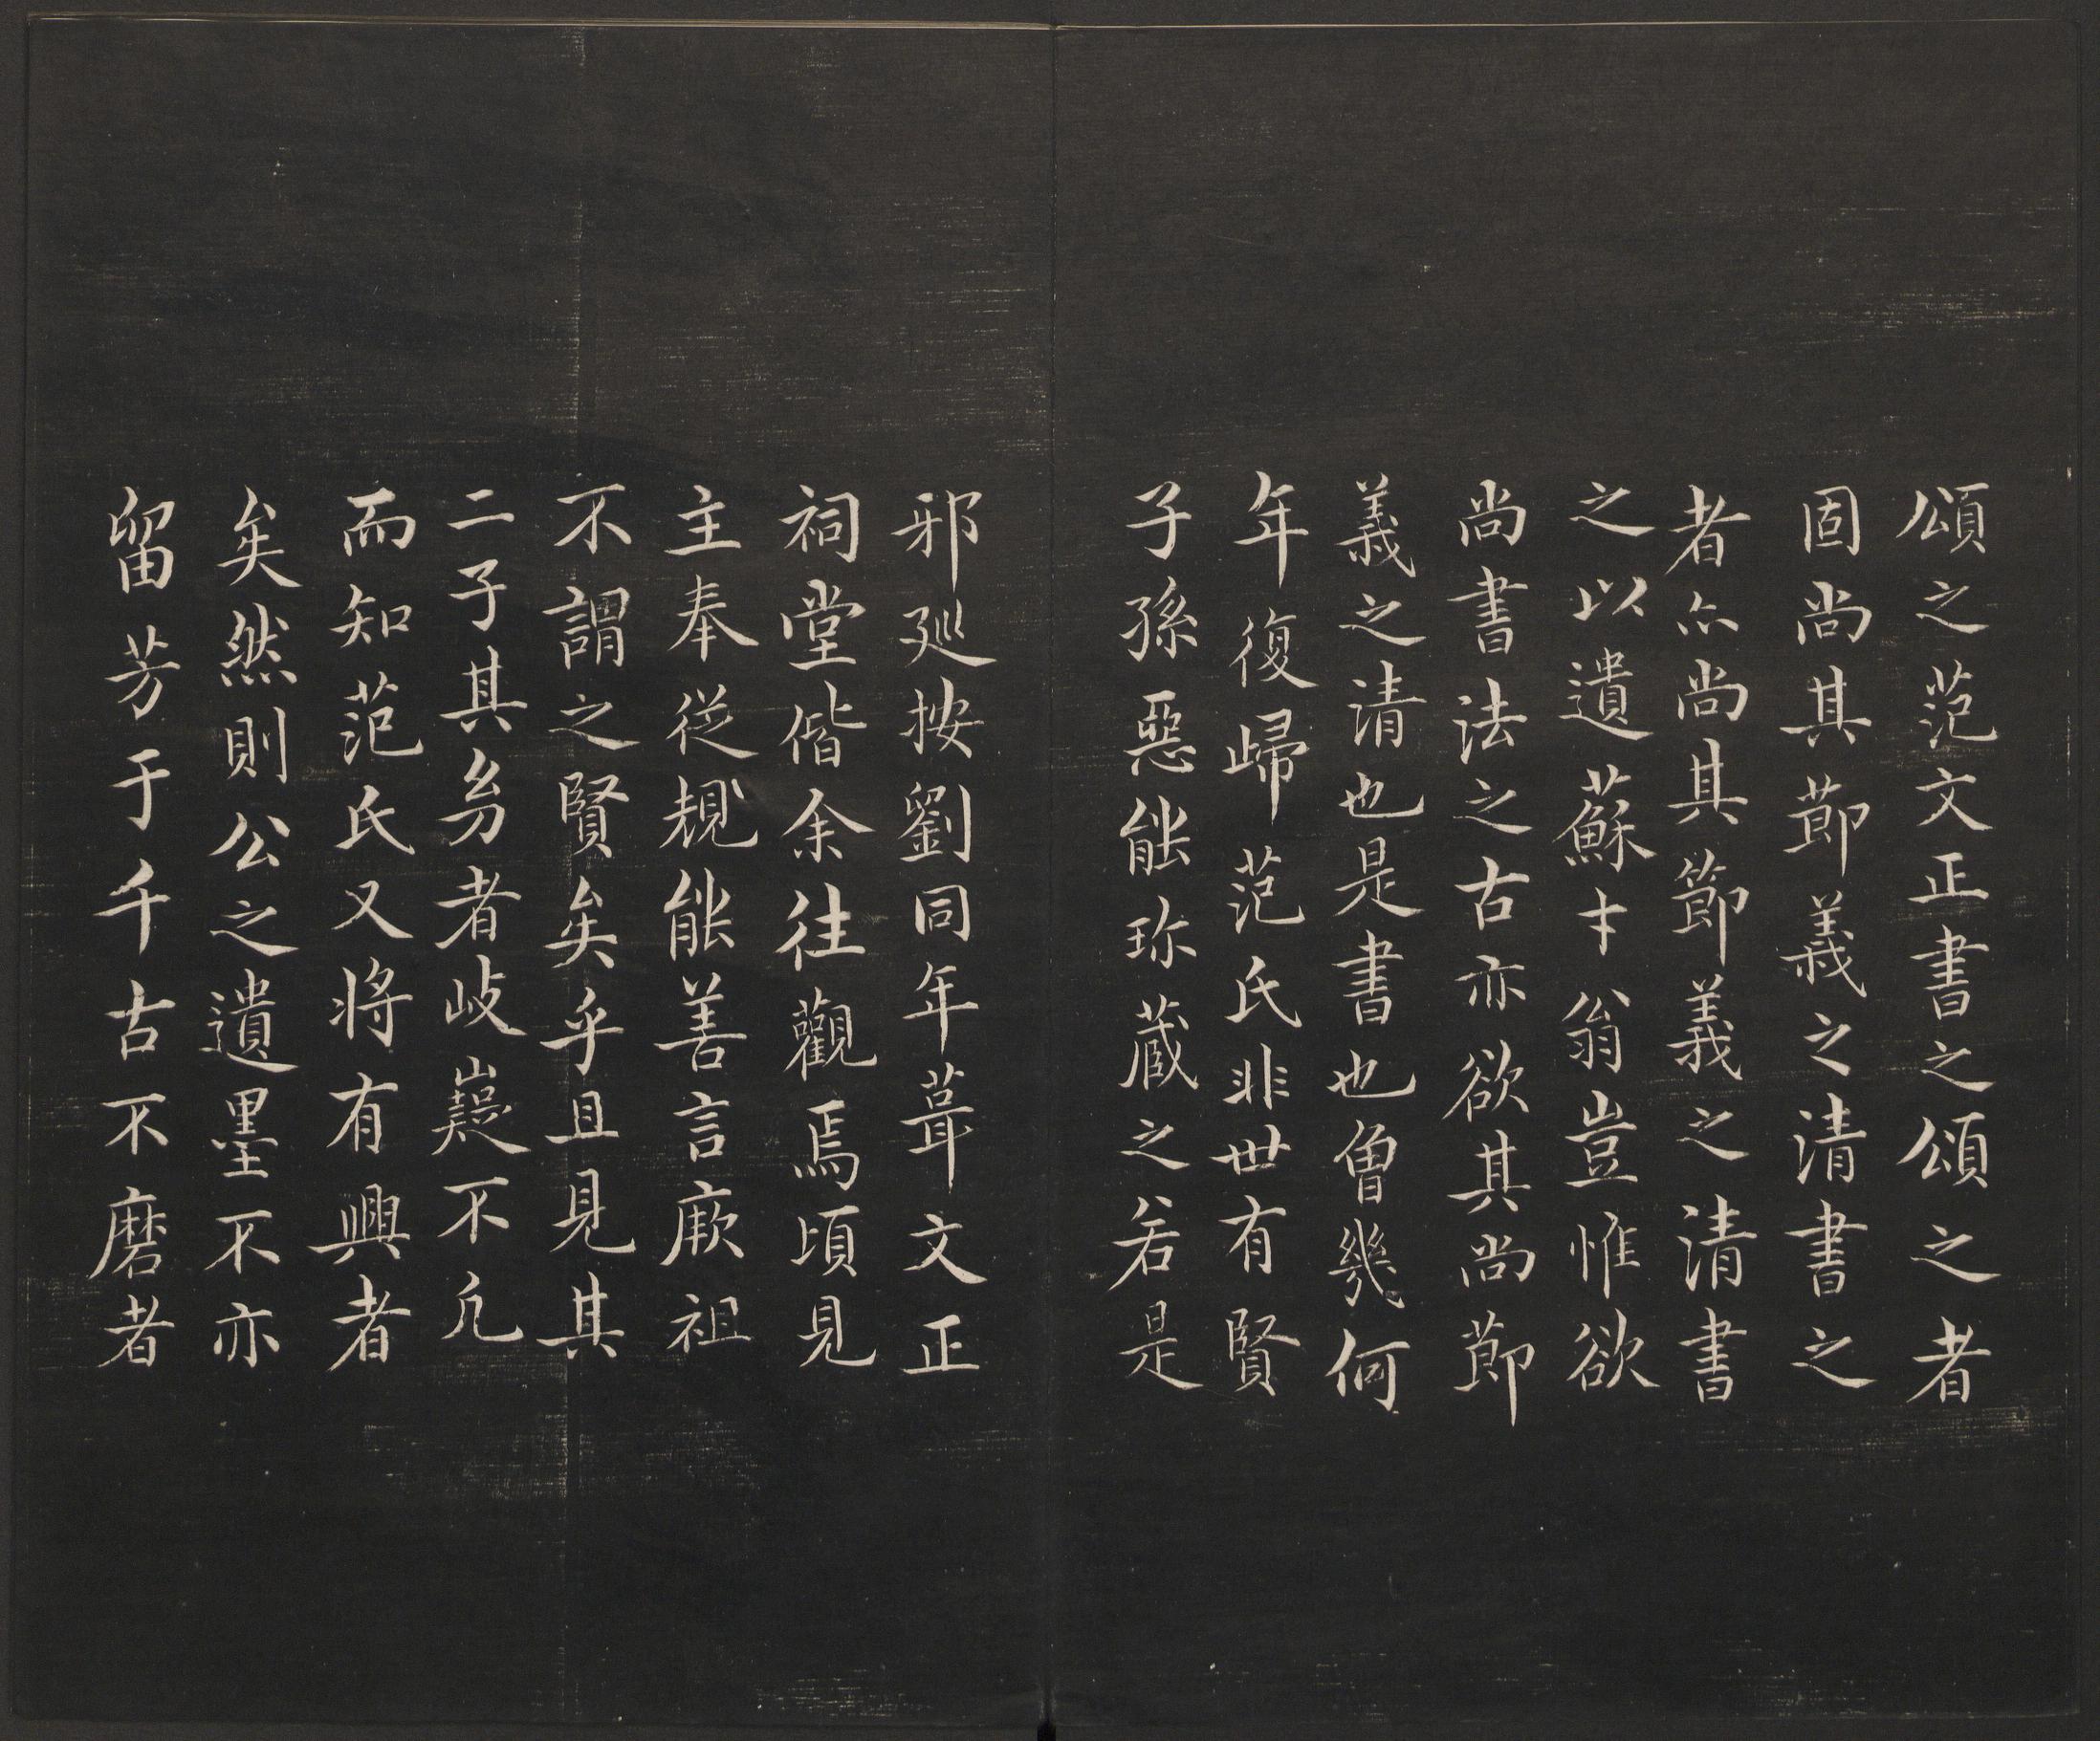 頌之范文正書之頌之者
固尚其節義之清書之
者亦尚其節義之清書
之以遺蘇才翁豈惟欲
尚書法之古亦欲其尚節
義之清也是書也曾幾何
年復歸范氏非世有賢
子孫惡能珎藏之若是
邪廵按劉同年葺文正
祠堂偕余往觀焉頃見
主奉從規能善言厥祖
不謂之賢矣乎且見其
二子其㓜者岐嶷不凡
而知范氏又將有興者
矣然則公之遺墨不亦
留芳于千古不磨者